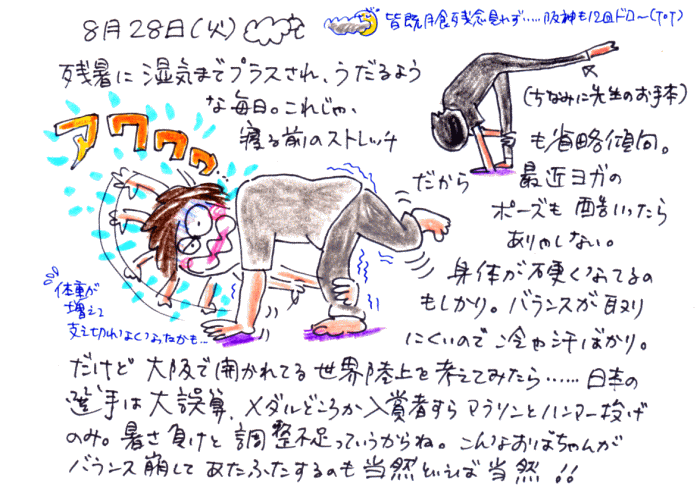 8月28日(火)
皆既月食残念見れず……阪神も12回ドロー(ToT)
残暑に湿気までプラスされ、うだるよう
な毎日。これじゃ、
寝る前のストレッチ
(ちなみに先生のお手本)
も省略傾向。
アワワワ…
だから
最近ヨガの
ポーズも酷いったら
ありゃしない。
身体が硬くなってるの
もしかり。バランスが取り
にくいので冷や汗ばかり。
体重が
増えて
支え切れなくなったかも…
だけど大阪で開かれてる世界陸上を考えてみたら……日本の
選手は大誤算、メダルどころか入賞者すらマラソンとハンマー投げ
のみ。暑さ負けと調整不足っていうからね。こんなおばちゃんが
バランス崩してあたふたするのも当然といえば当然!!